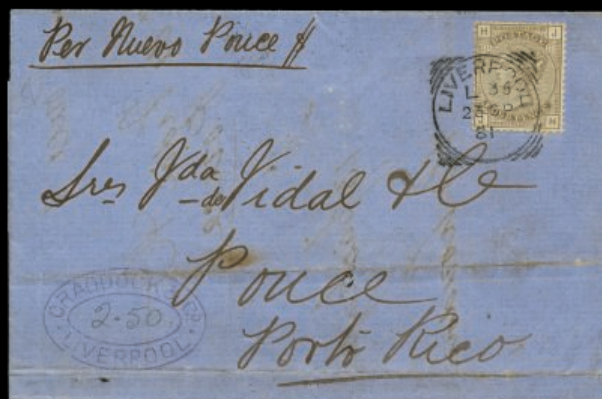 Per Nuevo Ponce
H J
LIVERPOOL
L 36
23 SP
81
J H
Sres Vda de Vidal & Co
Ponce
Porto Rico
CRADDOCK & Co
2-50
LIVERPOOL